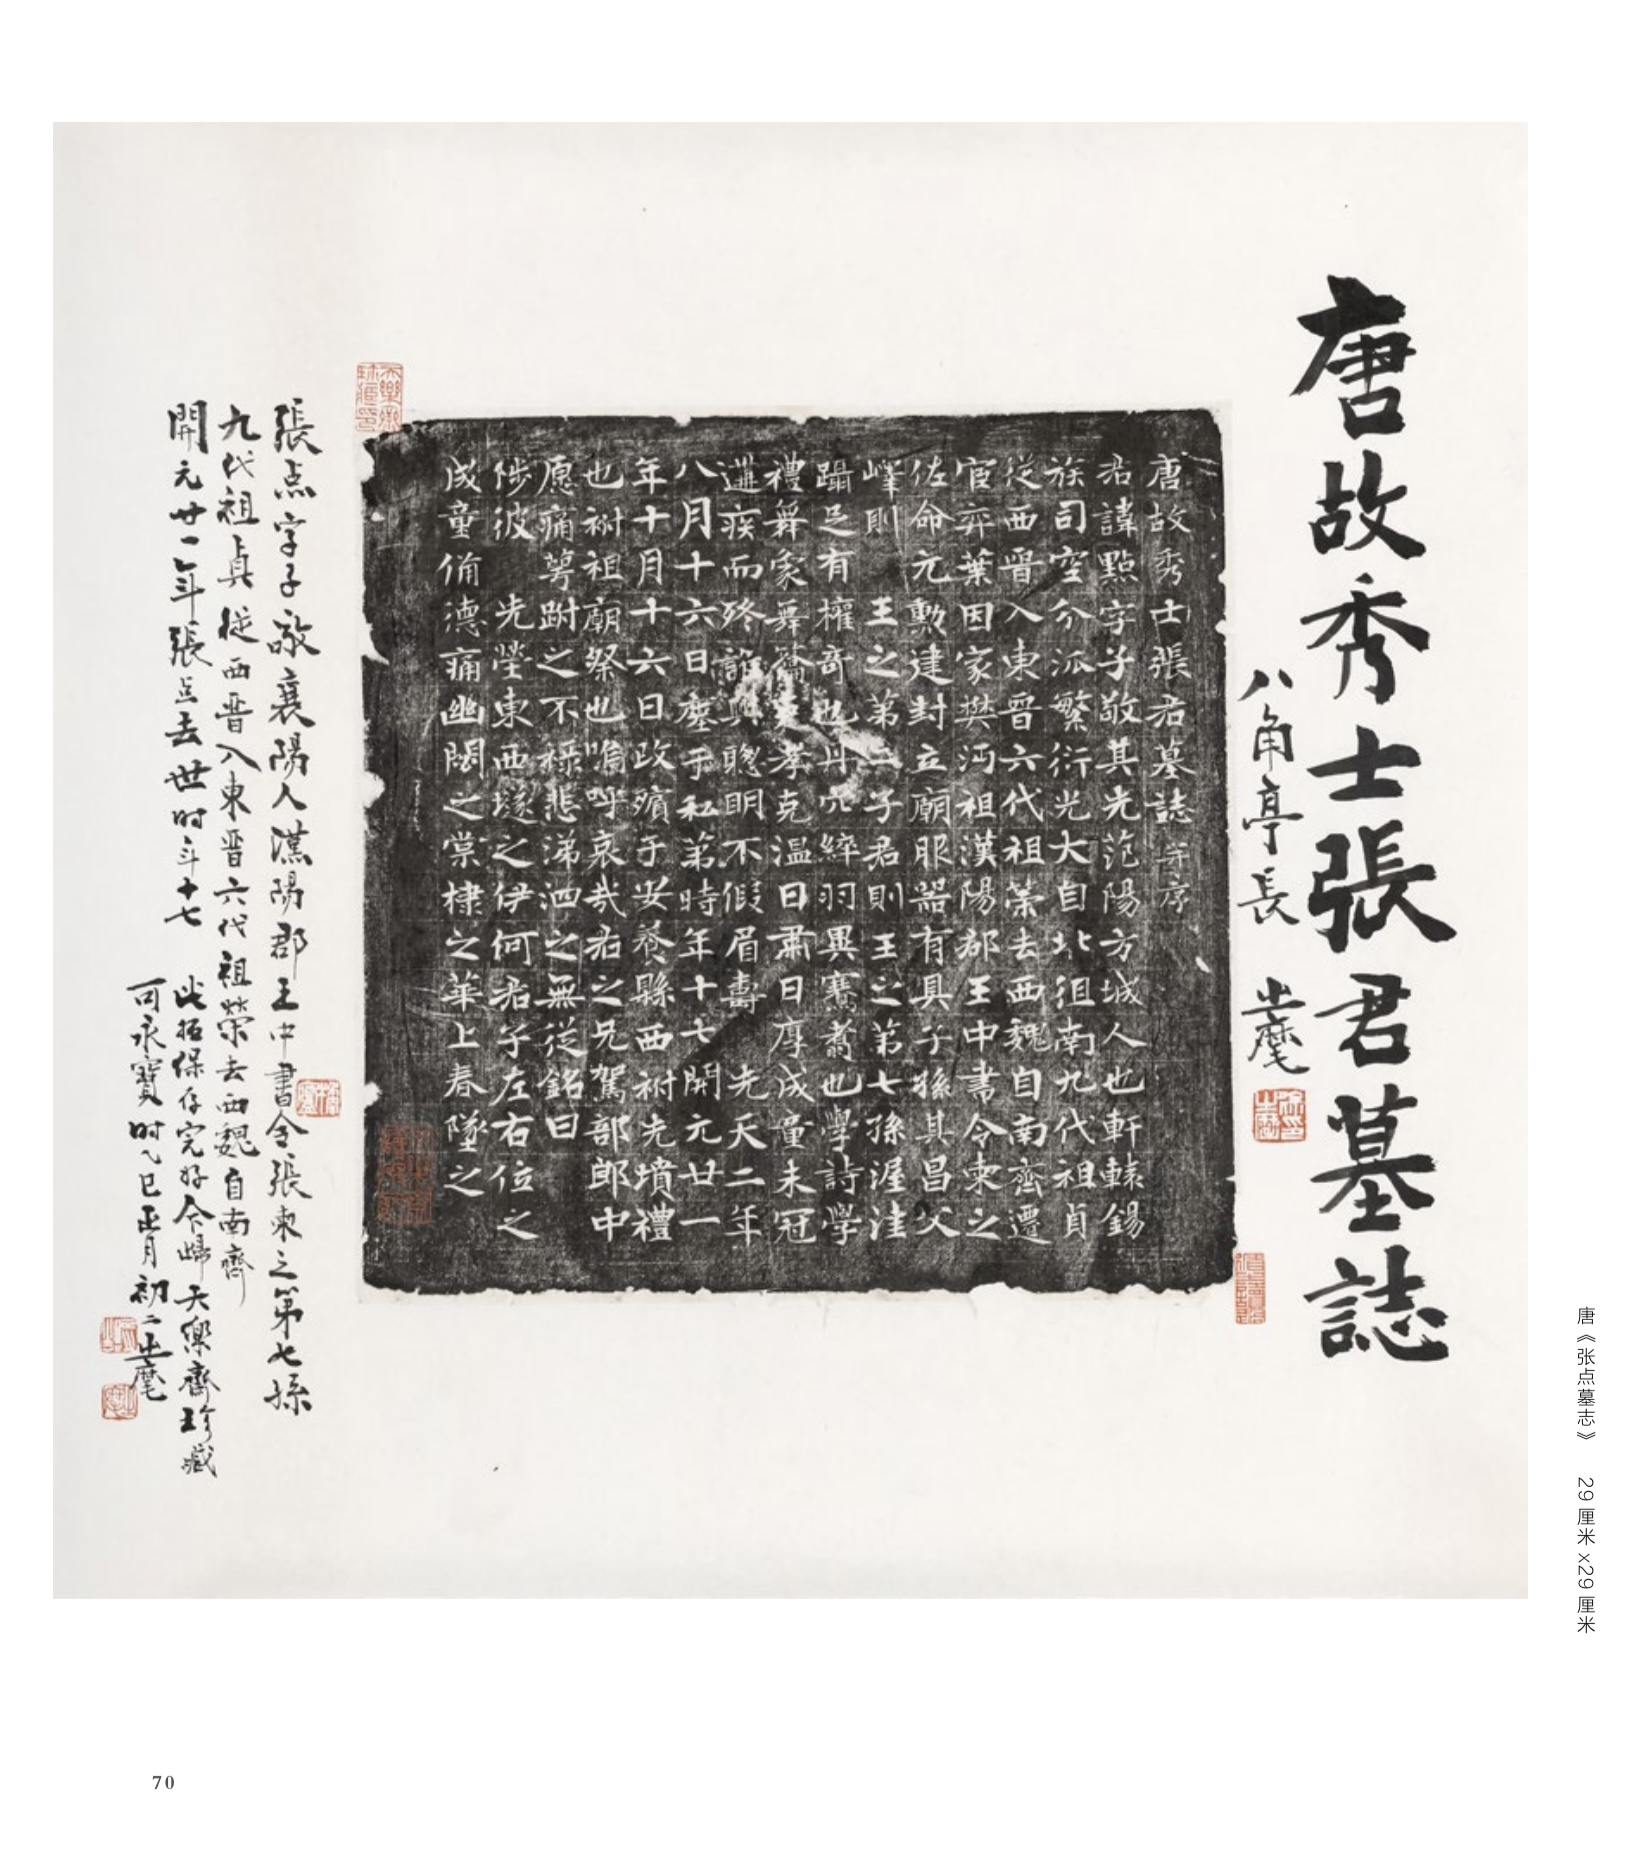 唐故秀士張君墓誌
八角亭長
唐故秀士張君墓誌 并序
君諱點字子敬其先范陽方城人也軒轅錫
族司空分派繁衍光大自北徂南九代祖貞
從西晉入東晉六代祖榮去西魏自南齊遷
宦弈葉因家樊沔祖漢陽郡王中書令柬之
佐命元勳建封立廟服器有具子孫其昌父
嶧則 王之第二子君則王之第七孫渥洼
躡足有權奇也丹穴綷羽異騫翥也學詩學
禮舞象舞籥孝克溫日肅日厚成童未冠
遘疾而終聰明不假眉壽 先天二年
八月十六日塟于私第時年十七開元廿一
年十月十六日改殯于安養縣西祔先墳禮
也祔祖廟祭也嗚呼哀哉君之兄駕部郎中
愿痛萼跗之不祿悲涕泗之無從銘曰
陟彼 先塋東西墜之伊何君子左右位之
成童備德痛幽閟之棠棣之華上春墜之
張点字子敬襄陽人漢陽郡王中書令張柬之第七孫
九代祖貞從西晋入東晋六代祖榮去西魏自南齊
開元廿一年張点去世时年十七 此拓保存完好今歸天樂齋珍藏
可永寶时乙巳正月初二
唐《张点墓志》 29厘米x29厘米
70